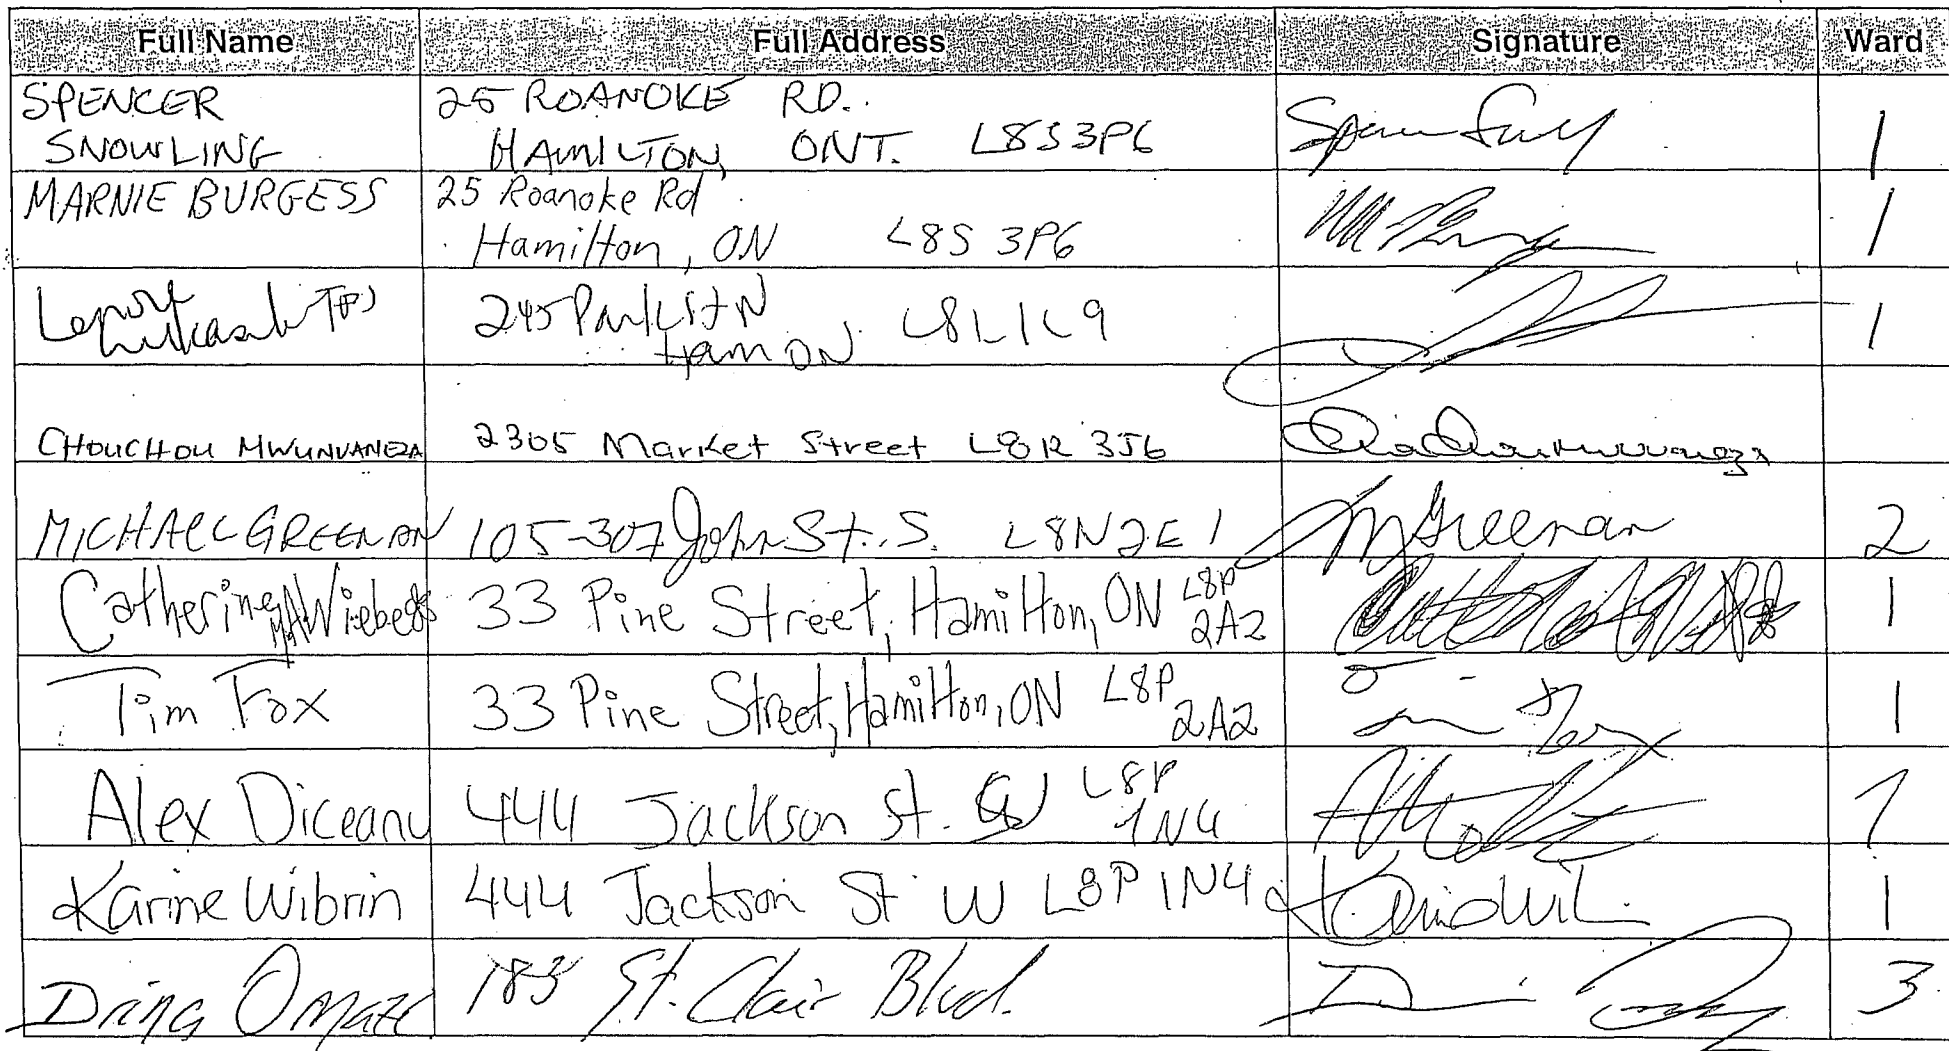 Full Name Full Address Signature Ward
SPENCER 25 ROANOKE RD.
SNOWLING HAMILTON, ONT. L8S3P6 1
MARNIE BURGESS 25 Roanoke Rd
Hamilton, ON L8S 3P6 1
245 Park St N L8L1L9
Ham ON 1
CHOUCHOU 2305 Market Street L8R 3J6
MICHAEL GREENAN 105-307 John St. S. L8N2E1 MGreenan 2
Catherine 33 Pine Street, Hamilton, ON L8P 1
2A2
Tim Fox 33 Pine Street, Hamilton, ON L8P 1
2A2
Alex Diceanu 444 Jackson St. W L8P 1
1N4
Karine Wibrin 444 Jackson St W L8P 1N4 1
183 St. Clair Blvd. 3